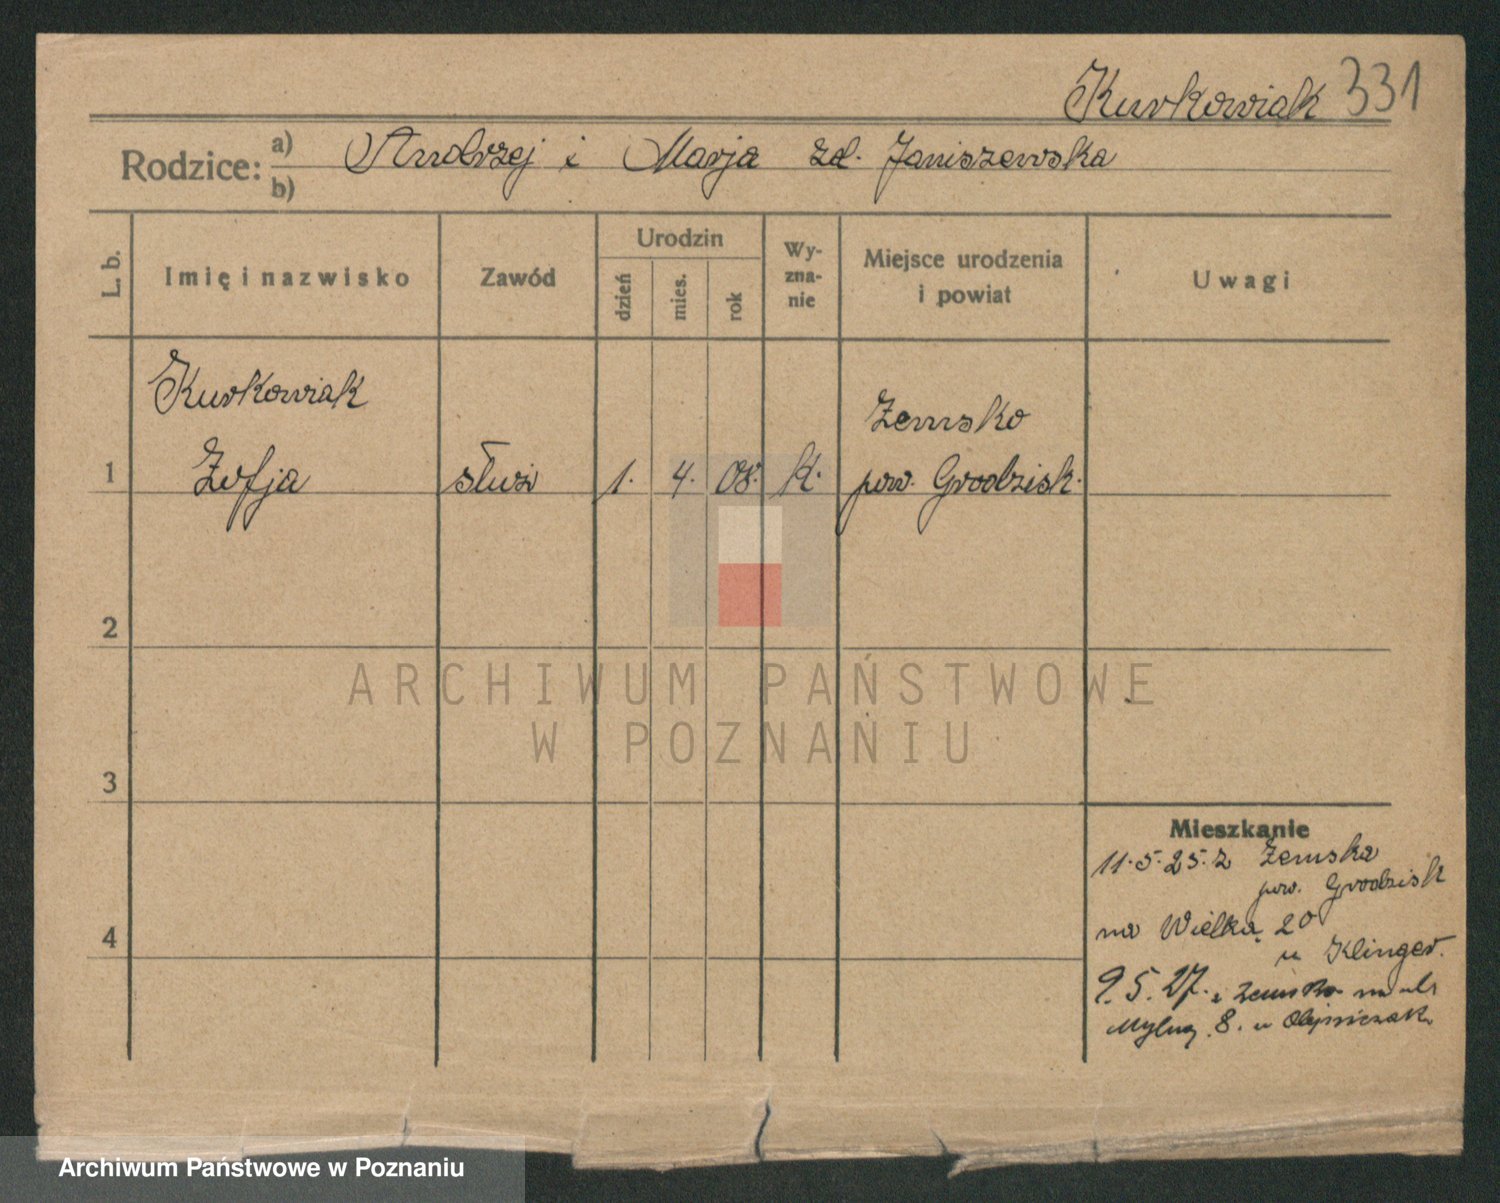 Kurkowiak 331
Rodzice: a) Andrzej i Marja zd. Janiszewska
b)
L. b.
Imię i nazwisko
Zawód
Urodzin
dzień
mies.
rok
Wy-
zna-
nie
Miejsce urodzenia
i powiat
Uwagi
Kurkowiak
Żemsko
1 Zofja służ 1. 4. 08. K. pow. Grodzisk.
2
3
4
Mieszkanie
11.5.25. z Żemska
pow. Grodzisk
na Wielką 20
u Klinger.
9.5.27. z Żemsko na ul.
Mylną 8. u Olejniczak
ARCHIWUM PAŃSTWOWE
W POZNANIU
Archiwum Państwowe w Poznaniu